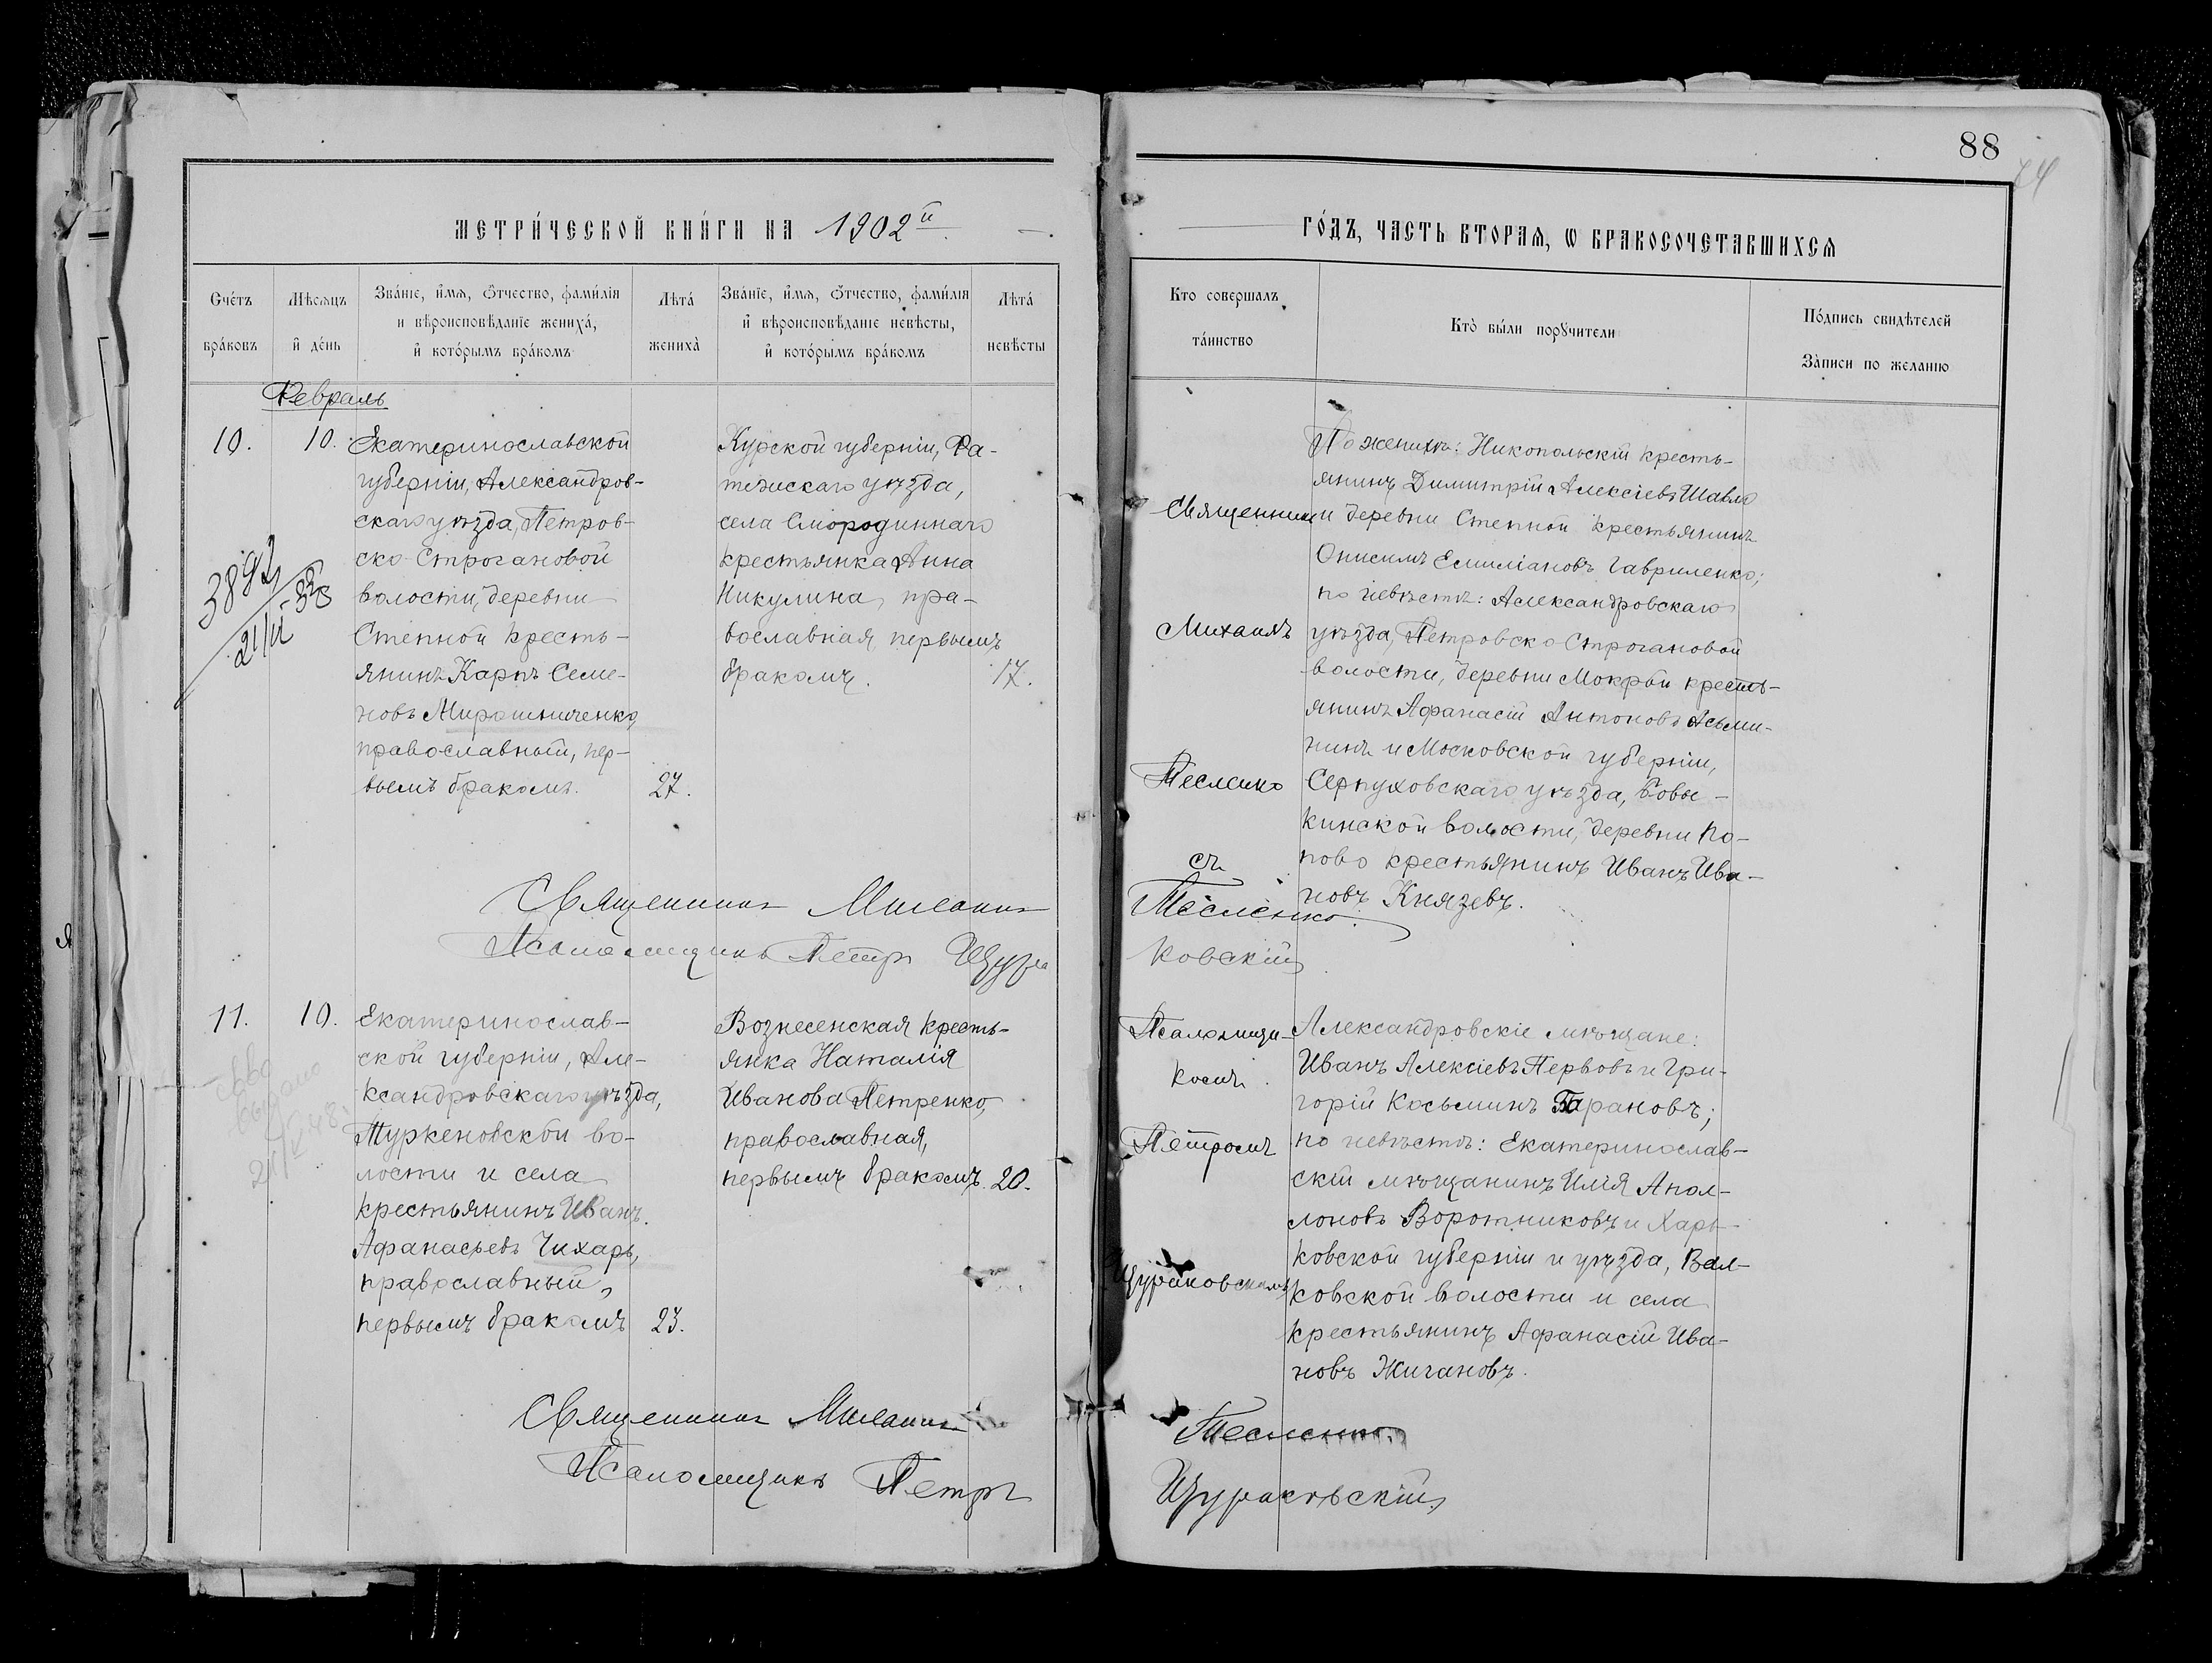 88
74
МЕТРИ́ЧЕСКОЙ КНИ́ГИ НА 1902й
ГО́ДЪ, ЧАСТЬ ВТОРАѦ, Ѡ БРАКОСОЧЕТАВШИХСѦ
Счéтъ
брáковъ
Мѣсѧцъ
и дéнь
Звáнїе, и́мѧ, ѻ́тчество, фами́лїѧ
и вѣроисповѣ́данїе женихá,
и котóрымъ брáкомъ
Лѣтá
женихà
Звáнїе, и́мѧ, ѻ́тчество, фами́лїѧ
и вѣроисповѣ́данїе невѣ́сты,
и котóрымъ брáкомъ
Лѣтá
невѣ́сты
Кто совершалъ
тáинство
Ктò бы́ли порꙋчители
Пóдпись свидѣтелей
Зàписи по желанїю
Февраль
10.
10.
Екатеринославской
губерніи, Александров-
скаго уѣзда, Петров-
ско-Строгановой
волости, деревни
Степной кресть-
янинъ Карпъ Семе-
новъ Мирошниченко,
православный, пер-
вымъ бракомъ.
27.
Курской губерніи, Фа-
тежскаго уѣзда,
села Смородиннаго
крестьянка Анна
Никулина, пра-
вославная, первымъ
бракомъ.
17.
3892
21/II
Священникъ
Михаилъ
Тесленко
съ
По женихѣ: Никопольскій кресть-
янинъ Димитрій Алексіевъ Шавло
и деревни Степной крестьянинъ
Онисимъ Емиліановъ Гавриленко;
по невѣстѣ: Александровскаго
уѣзда, Петровско-Строгановой
волости, деревни Мокрой кресть-
янинъ Афанасій Антоновъ Асьми-
нинъ и Московской губерніи,
Серпуховскаго уѣзда, Бовы-
кинской волости, деревни По-
пово крестьянинъ Иванъ Ива-
новъ Князевъ.
Священникъ Михаилъ Тесленко
Псаломщикъ Петръ Щура
ковскій
11.
10.
Екатеринослав-
ской губерніи, Але-
ксандровскаго уѣзда,
Туркеновской во-
лости и села
крестьянинъ Иванъ
Афанасьевъ Чихарь,
православный,
первымъ бракомъ
23.
Вознесенская кресть-
янка Наталія
Иванова Петренко,
православная,
первымъ бракомъ.
20.
Псаломщи-
комъ
Петромъ
Щураковскимъ
Александровскіе мѣщане:
Иванъ Алексіевъ Первовъ и Гри-
горій Косьминъ Барановъ;
по невѣстѣ: Екатеринослав-
скій мѣщанинъ Илія Апол-
лоновъ Воротниковъ и Харь-
ковской губерніи и уѣзда, Вал-
ковской волости и села
крестьянинъ Афанасій Ива-
новъ Жигановъ.
Священникъ Михаилъ Тесленко.
Псаломщикъ Петръ Щураковскій